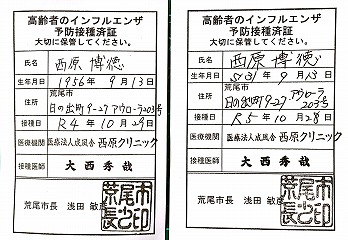 高齢者のインフルエンザ
予防接種済証
大切に保管してください。
氏名 西原 博徳
生年月日 1956年 9月13日
住所 荒尾市
日の出町9-27 アウローラ203号
接種日 R4年10月29日
医療機関 医療法人成風会 西原クリニック
接種医師 大西秀哉
荒尾市長 浅田 敏彦
荒尾市長之印
高齢者のインフルエンザ
予防接種済証
大切に保管してください。
氏名 西原 博徳
生年月日 S31年 9月13日
住所 荒尾市 アウローラ
日の出町9-27 203号
接種日 R5年10月28日
医療機関 医療法人成風会 西原クリニック
接種医師 大西秀哉
荒尾市長 浅田 敏彦
荒尾市長之印